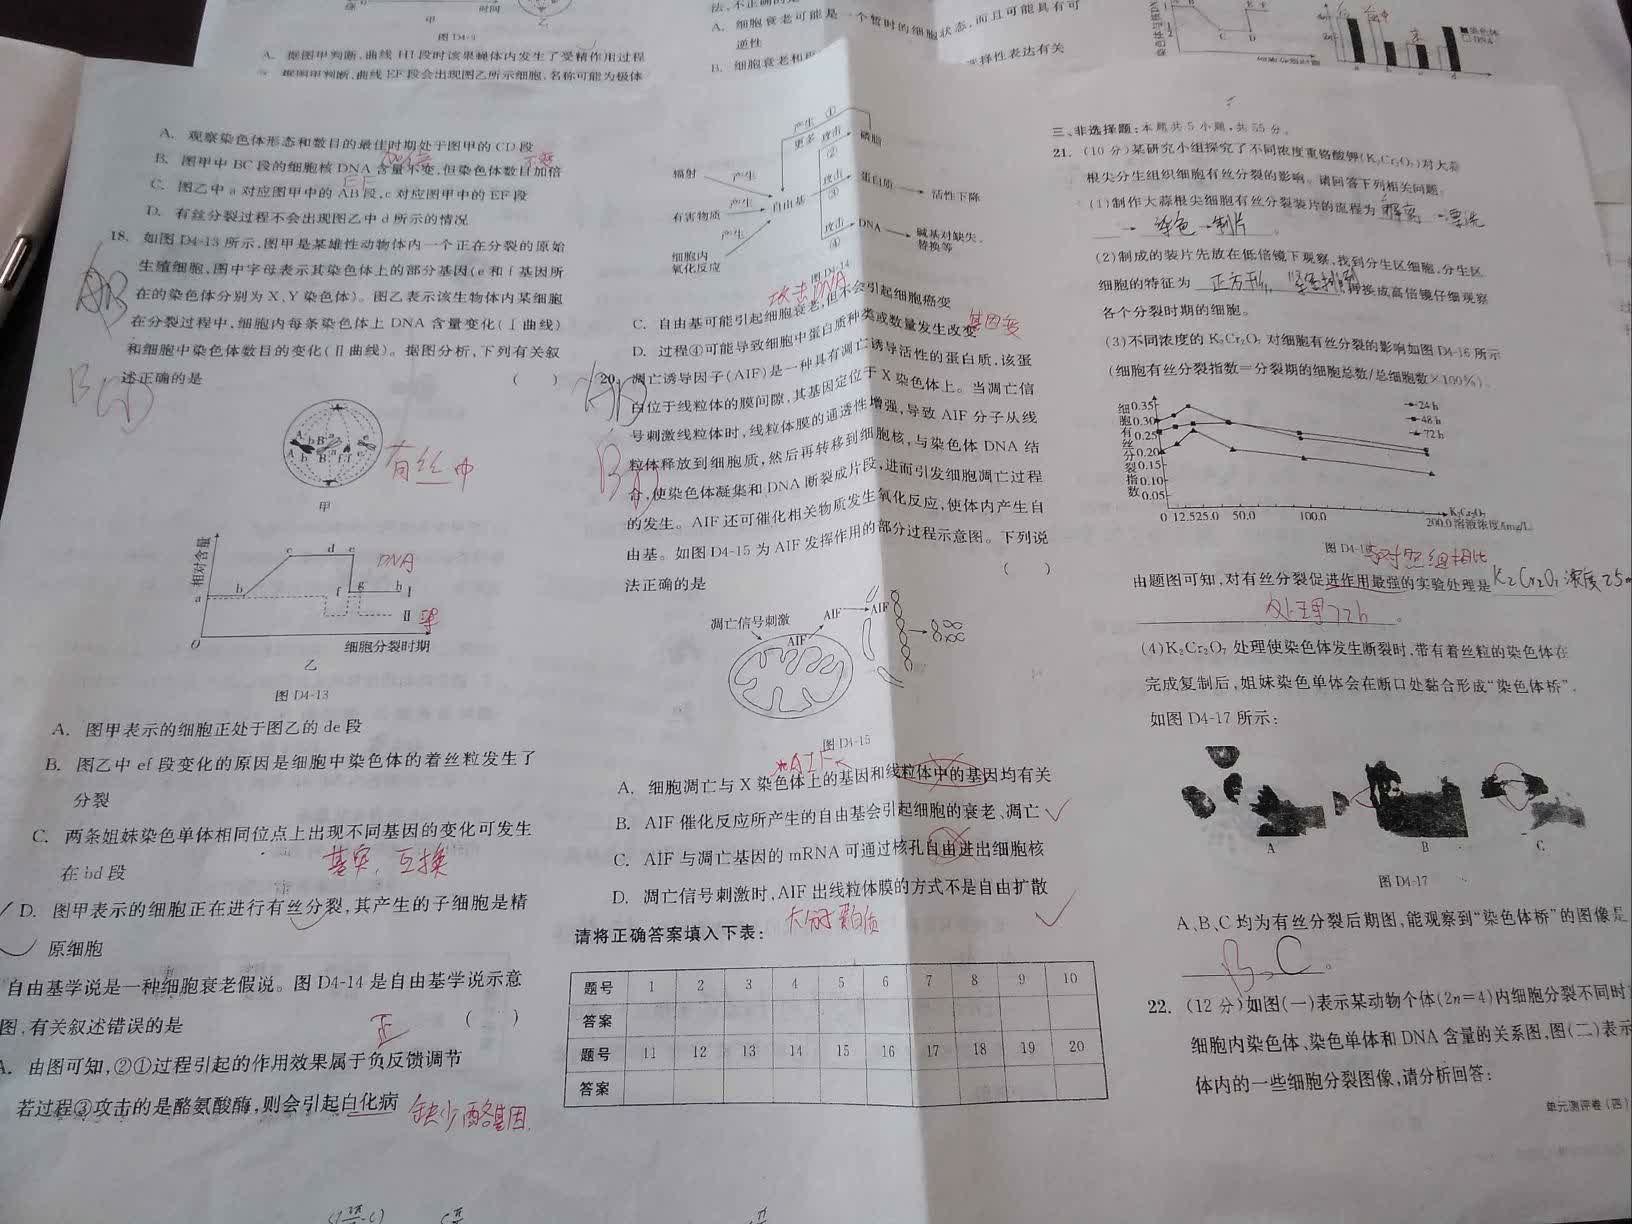 图 D4-9
A. 据图甲判断,曲线 HI 段时该果蝇体内发生了受精作用过程
据图甲判断,曲线 EF 段会出现图乙所示细胞,名称可能为极体
A. 细胞衰老可能是一个暂时的细胞状态,而且可能具有可
逆性
B. 细胞衰老和
选择性表达有关
A. 观察染色体形态和数目的最佳时期处于图甲的 CD 段
B. 图甲中 BC 段的细胞核 DNA 含量不变,但染色体数目加倍
加倍
不变
C. 图乙中 a 对应图甲中的 AB 段,c 对应图甲中的 EF 段
EF
D. 有丝分裂过程不会出现图乙中 d 所示的情况
18. 如图 D4-13 所示,图甲是某雄性动物体内一个正在分裂的原始
生殖细胞,图中字母表示其染色体上的部分基因(e 和 f 基因所
在的染色体分别为 X、Y 染色体)。图乙表示该生物体内某细胞
在分裂过程中,细胞内每条染色体上 DNA 含量变化(Ⅰ曲线)
和细胞中染色体数目的变化(Ⅱ曲线)。据图分析,下列有关叙
述正确的是 ( )
有丝中
甲
相对含量
a b c d e f g h Ⅰ
DNA
Ⅱ
0
细胞分裂时期
乙
图 D4-13
A. 图甲表示的细胞正处于图乙的 de 段
B. 图乙中 ef 段变化的原因是细胞中染色体的着丝粒发生了
分裂
C. 两条姐妹染色单体相同位点上出现不同基因的变化可发生
在 bd 段
基突,互换
D. 图甲表示的细胞正在进行有丝分裂,其产生的子细胞是精
原细胞
自由基学说是一种细胞衰老假说。图 D4-14 是自由基学说示意
图,有关叙述错误的是 ( )
正
A. 由图可知,②①过程引起的作用效果属于负反馈调节
若过程③攻击的是酪氨酸酶,则会引起白化病
缺少酪基因
产生 ①
更多 攻击 磷脂
②
辐射 产生
攻击 蛋白质 活性下降
有害物质 产生 自由基 ③
产生 攻击 DNA 碱基对缺失、
④ 替换等
细胞内
氧化反应
图 D4-14
攻击DNA
C. 自由基可能引起细胞衰老,但不会引起细胞癌变
D. 过程④可能导致细胞中蛋白质种类或数量发生改变
基因变
20. 凋亡诱导因子(AIF)是一种具有凋亡诱导活性的蛋白质,该蛋
白位于线粒体的膜间隙,其基因定位于 X 染色体上。当凋亡信
号刺激线粒体时,线粒体膜的通透性增强,导致 AIF 分子从线
粒体释放到细胞质,然后再转移到细胞核,与染色体 DNA 结
合,使染色体凝集和 DNA 断裂成片段,进而引发细胞凋亡过程
的发生。AIF 还可催化相关物质发生氧化反应,使体内产生自
由基。如图 D4-15 为 AIF 发挥作用的部分过程示意图。下列说
法正确的是 ( )
凋亡信号刺激
AIF
AIF
AIF
图 D4-15
AIF
A. 细胞凋亡与 X 染色体上的基因和线粒体中的基因均有关
B. AIF 催化反应所产生的自由基会引起细胞的衰老、凋亡
C. AIF 与凋亡基因的 mRNA 可通过核孔自由进出细胞核
D. 凋亡信号刺激时,AIF 出线粒体膜的方式不是自由扩散
大分子蛋白质
请将正确答案填入下表:
题号 1 2 3 4 5 6 7 8 9 10
答案
题号 11 12 13 14 15 16 17 18 19 20
答案
三、非选择题:本题共 5 小题,共 55 分。
21. (10 分)某研究小组探究了不同浓度重铬酸钾(K₂Cr₂O₇)对大蒜
根尖分生组织细胞有丝分裂的影响。请回答下列相关问题:
(1)制作大蒜根尖细胞有丝分裂装片的流程为 解离→漂洗
→染色→制片。
(2)制成的装片先放在低倍镜下观察,找到分生区细胞,分生区
细胞的特征为 正方形, 紧密排列 再换成高倍镜仔细观察
各个分裂时期的细胞。
(3)不同浓度的 K₂Cr₂O₇ 对细胞有丝分裂的影响如图 D4-16 所示
(细胞有丝分裂指数=分裂期的细胞总数/总细胞数×100%)。
细胞有丝分裂指数
0.35
0.30
0.25
0.20
0.15
0.10
0.05
24 h
48 h
72 h
0 12.5 25.0 50.0 100.0 200.0
K₂Cr₂O₇
溶液浓度/(mg/L)
图 D4-16
与对照组相比
由题图可知,对有丝分裂促进作用最强的实验处理是 K₂Cr₂O₇浓度25
处理72h。
(4)K₂Cr₂O₇ 处理使染色体发生断裂时,带有着丝粒的染色体在
完成复制后,姐妹染色单体会在断口处黏合形成“染色体桥”,
如图 D4-17 所示:
A B C
图 D4-17
A、B、C 均为有丝分裂后期图,能观察到“染色体桥”的图像是
B、C。
22. (12 分)如图(一)表示某动物个体(2n=4)内细胞分裂不同时
细胞内染色体、染色单体和 DNA 含量的关系图,图(二)表示
体内的一些细胞分裂图像,请分析回答:
单元测评卷(四)